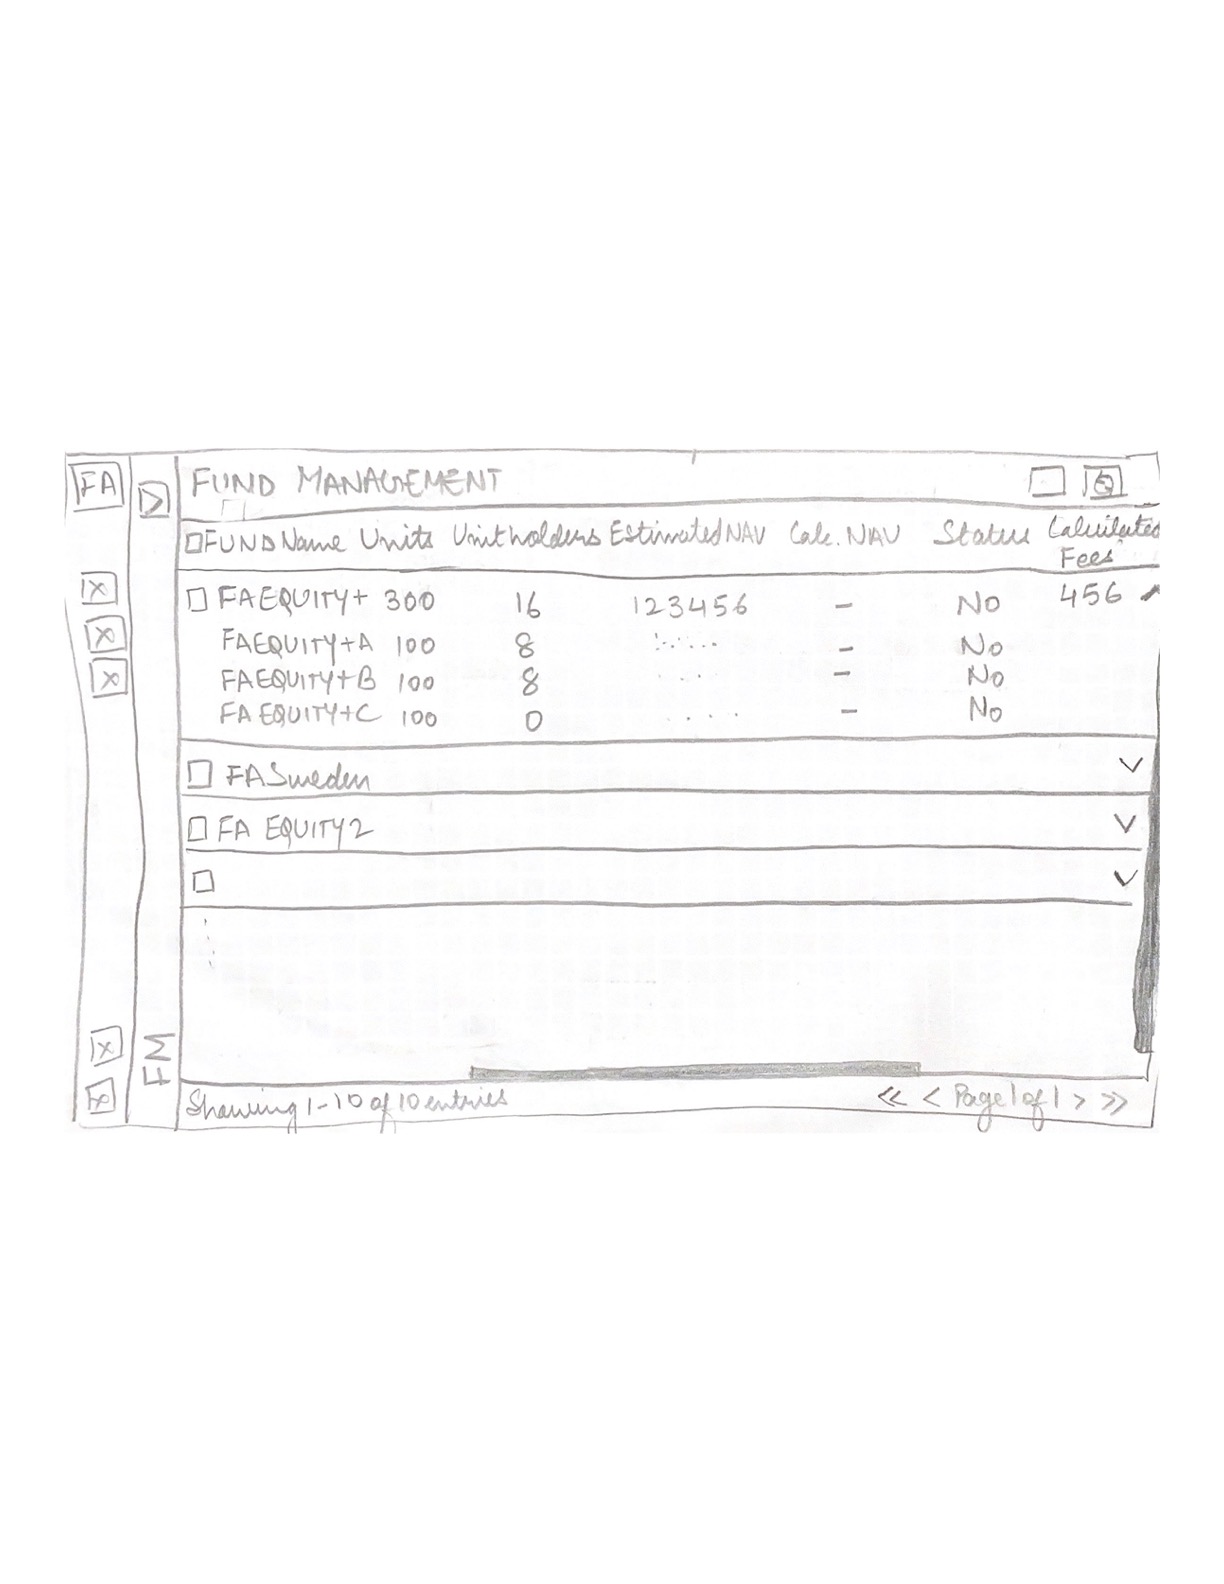 FA
FUND MANAGEMENT
FUND Name Units Unitholders Estimated NAV Calc. NAV Status Calculated
Fees
FA EQUITY+ 300 16 123456 - No 456
FAEQUITY+A 100 8 - No
FAEQUITY+B 100 8 - No
FA EQUITY+C 100 0 - No
FA Sweden
FA EQUITY2
FM
Showing 1-10 of 10 entries << < Page 1 of 1 > >>